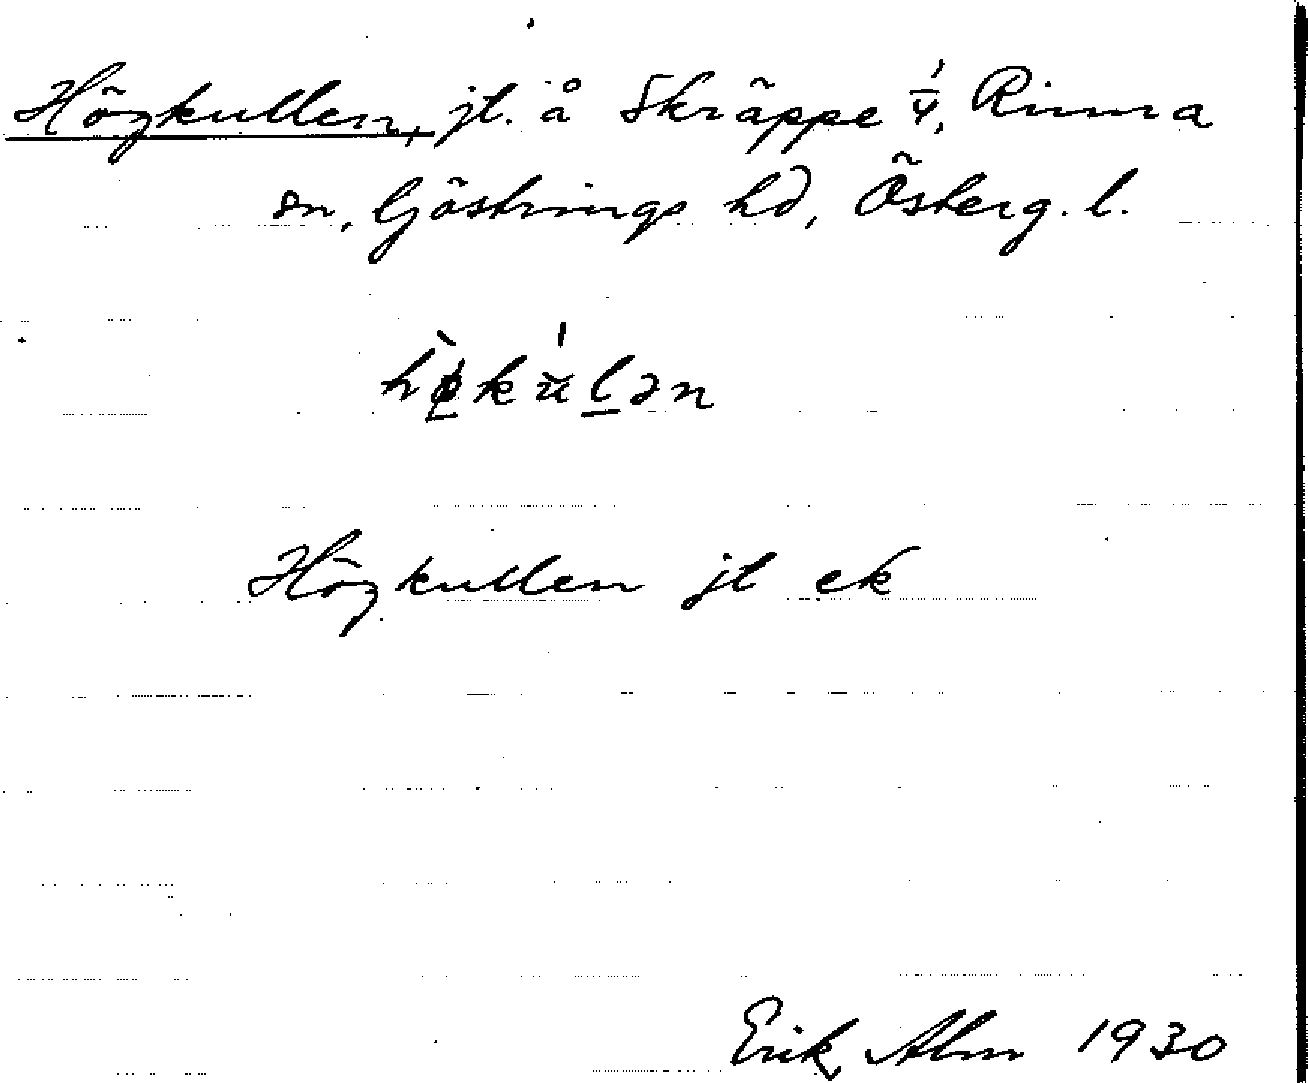 Högkullen, jt. å Skräppe 1/4, Rinna
sn, Göstrings hd, Österg. l.
hø̀kŭ́lən
Högkullen jt ek
Erik Alm 1930